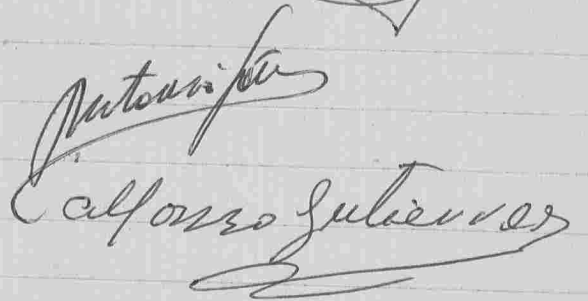 Antonio
Calfonso Gutierrez